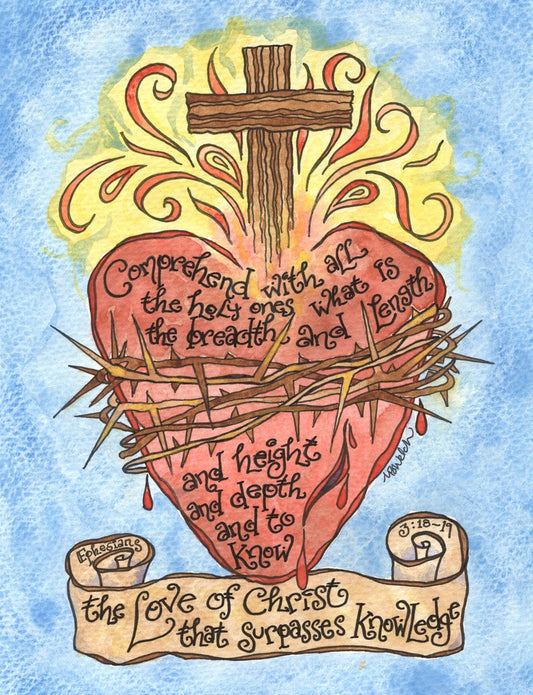 Comprehend with all
the holy ones what is
the breadth and Length
and height
and depth
and to
know
Ephesians
3:18~19
the Love of Christ
that surpasses knowledge